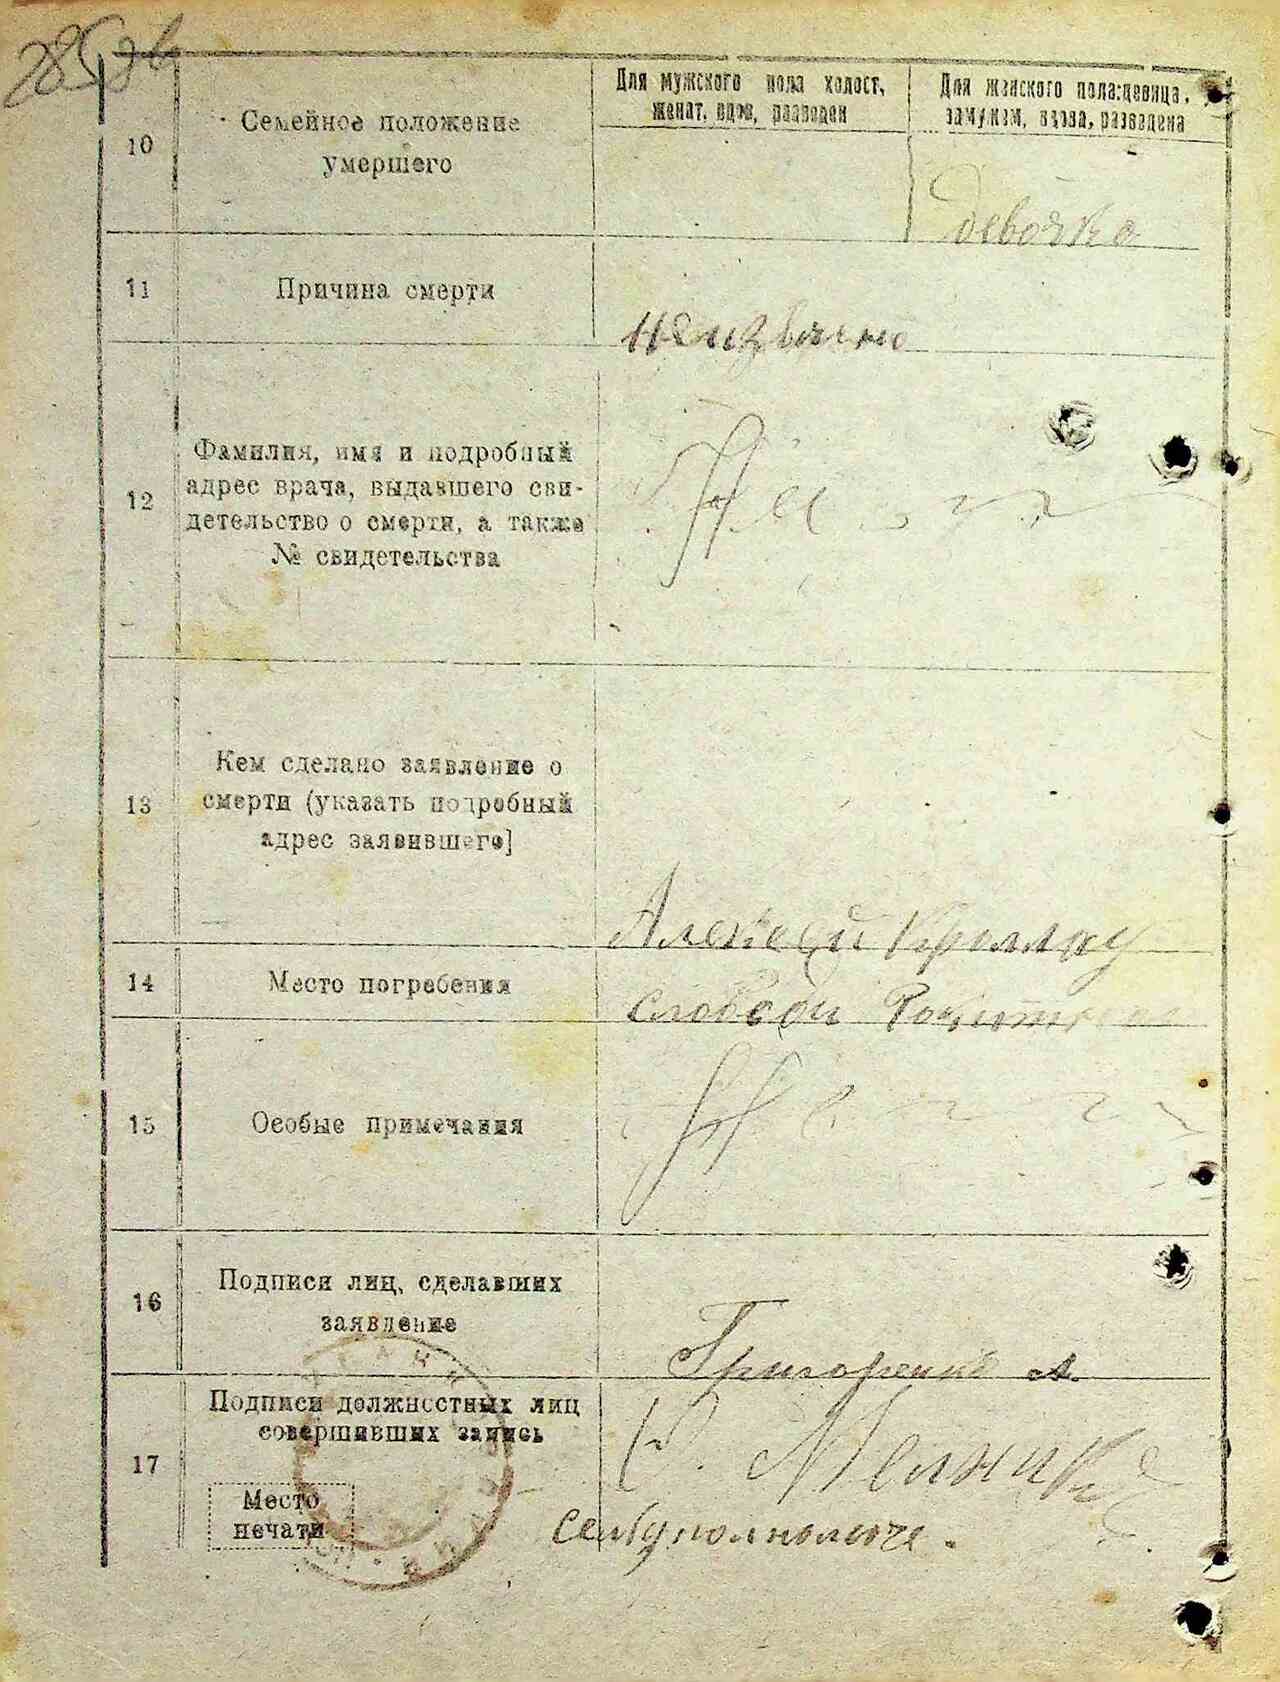 285 зв
Для мужского пола холост,
женат, вдов, разведен
Для женского пола: девица,
замужем, вдова, разведена
10
Семейное положение
умершего
девочка
11
Причина смерти
неизвесно
12
Фамилия, имя и подробный
адрес врача, выдавшего сви-
детельство о смерти, а также
№ свидетельства
13
Кем сделано заявление о
смерти (указать подробный
адрес заявившего]
Алексей
14
Место погребения
слободи
15
Особые примечания
16
Подписи лиц, сделавших
заявление
Григоренко А.
17
Подписи должностных лиц
совершивших запись
Место
печати